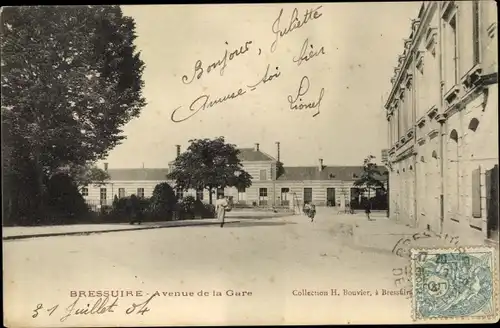 Bonjour Juliette
Amuse toi bien
Lionel
BRESSUIRE - Avenue de la Gare
Collection H. Bouvier, à Bressuire
31 Juillet 04